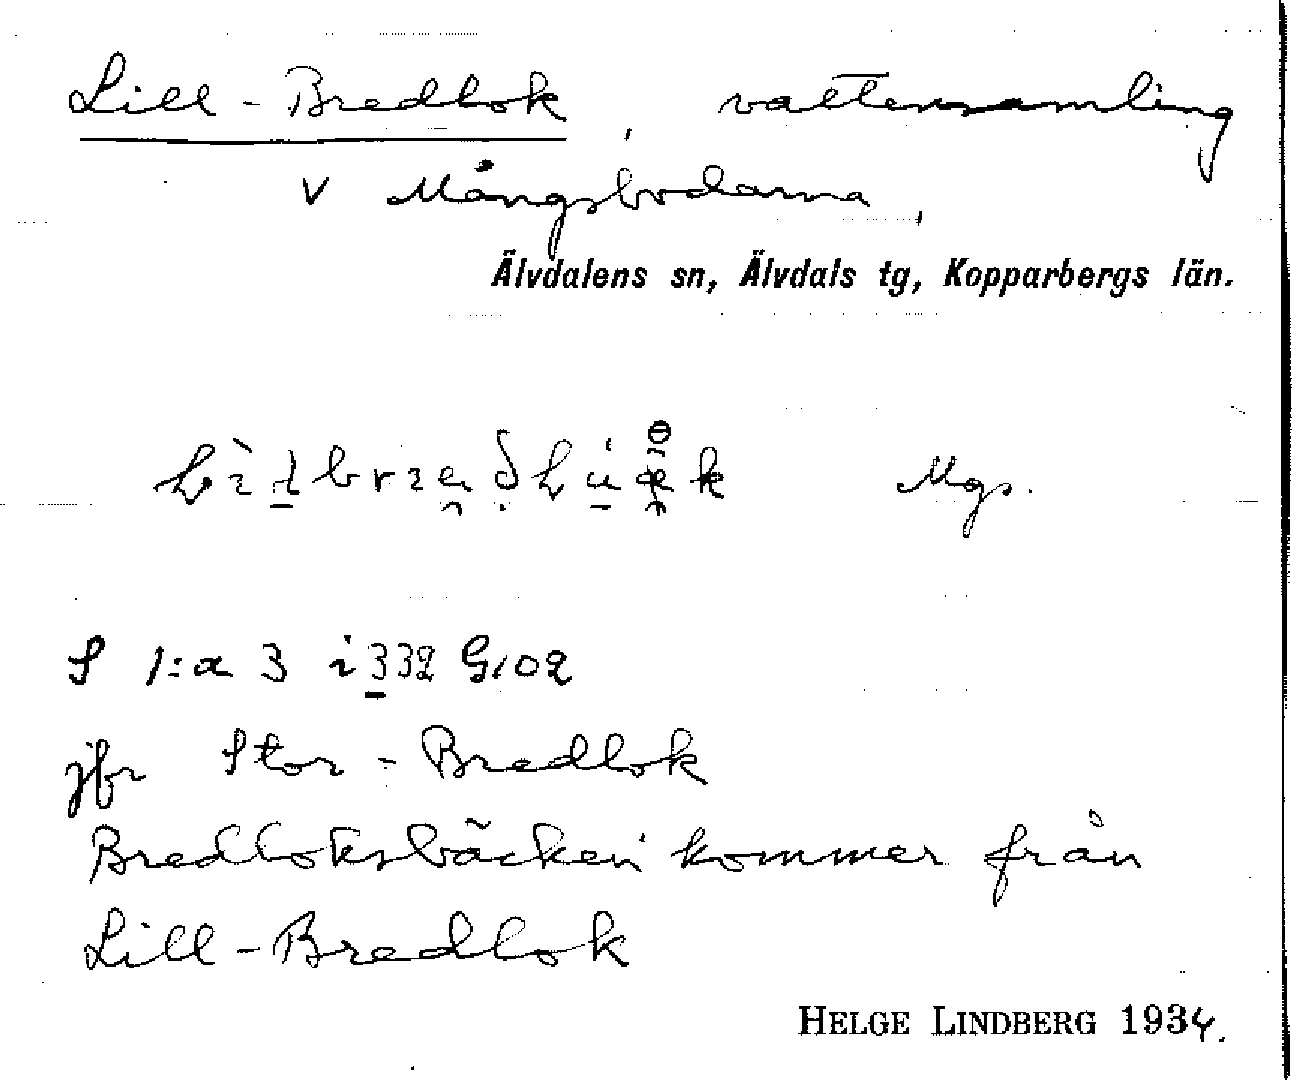 Lill-Bredlok, vattensamling
V Mångsbodarna,
Älvdalens sn, Älvdals tg, Kopparbergs län.
Mgs.
S 1:a 3 i 332 G102
jfr Stor-Bredlok
Bredloksbäcken kommer från
Lill-Bredlok
HELGE LINDBERG 1934.